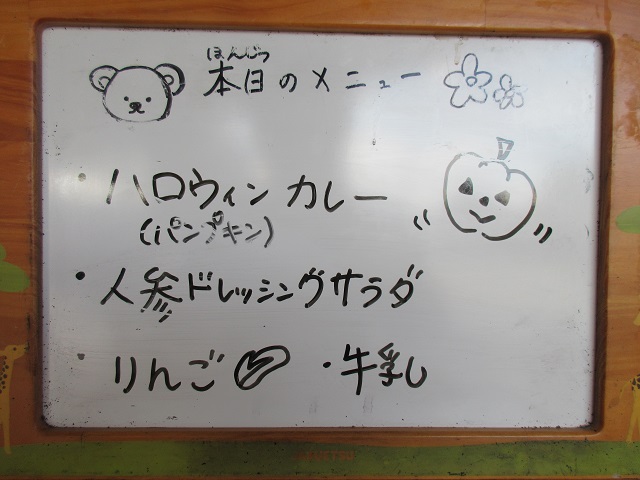 ほんじつ
本日のメニュー
・ハロウィンカレー
(パンプキン)
・人参ドレッシングサラダ
・りんご ・牛乳